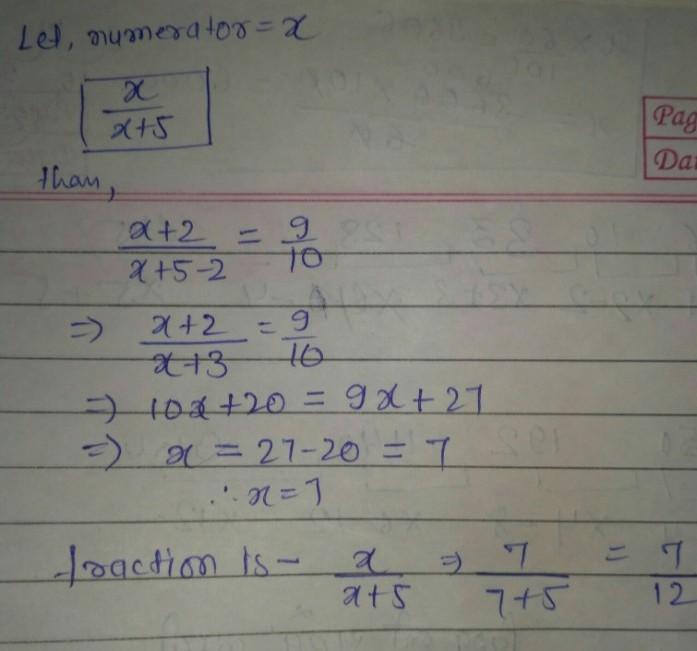 Let, numerator = x
x/x+5
Pag
Dat
than,
x+2/x+5-2 = 9/10
⇒ x+2/x+3 = 9/10
⇒ 10x+20 = 9x+27
⇒ x = 27-20 = 7
∴ x=7
fraction is - x/x+5 ⇒ 7/7+5 = 7/12